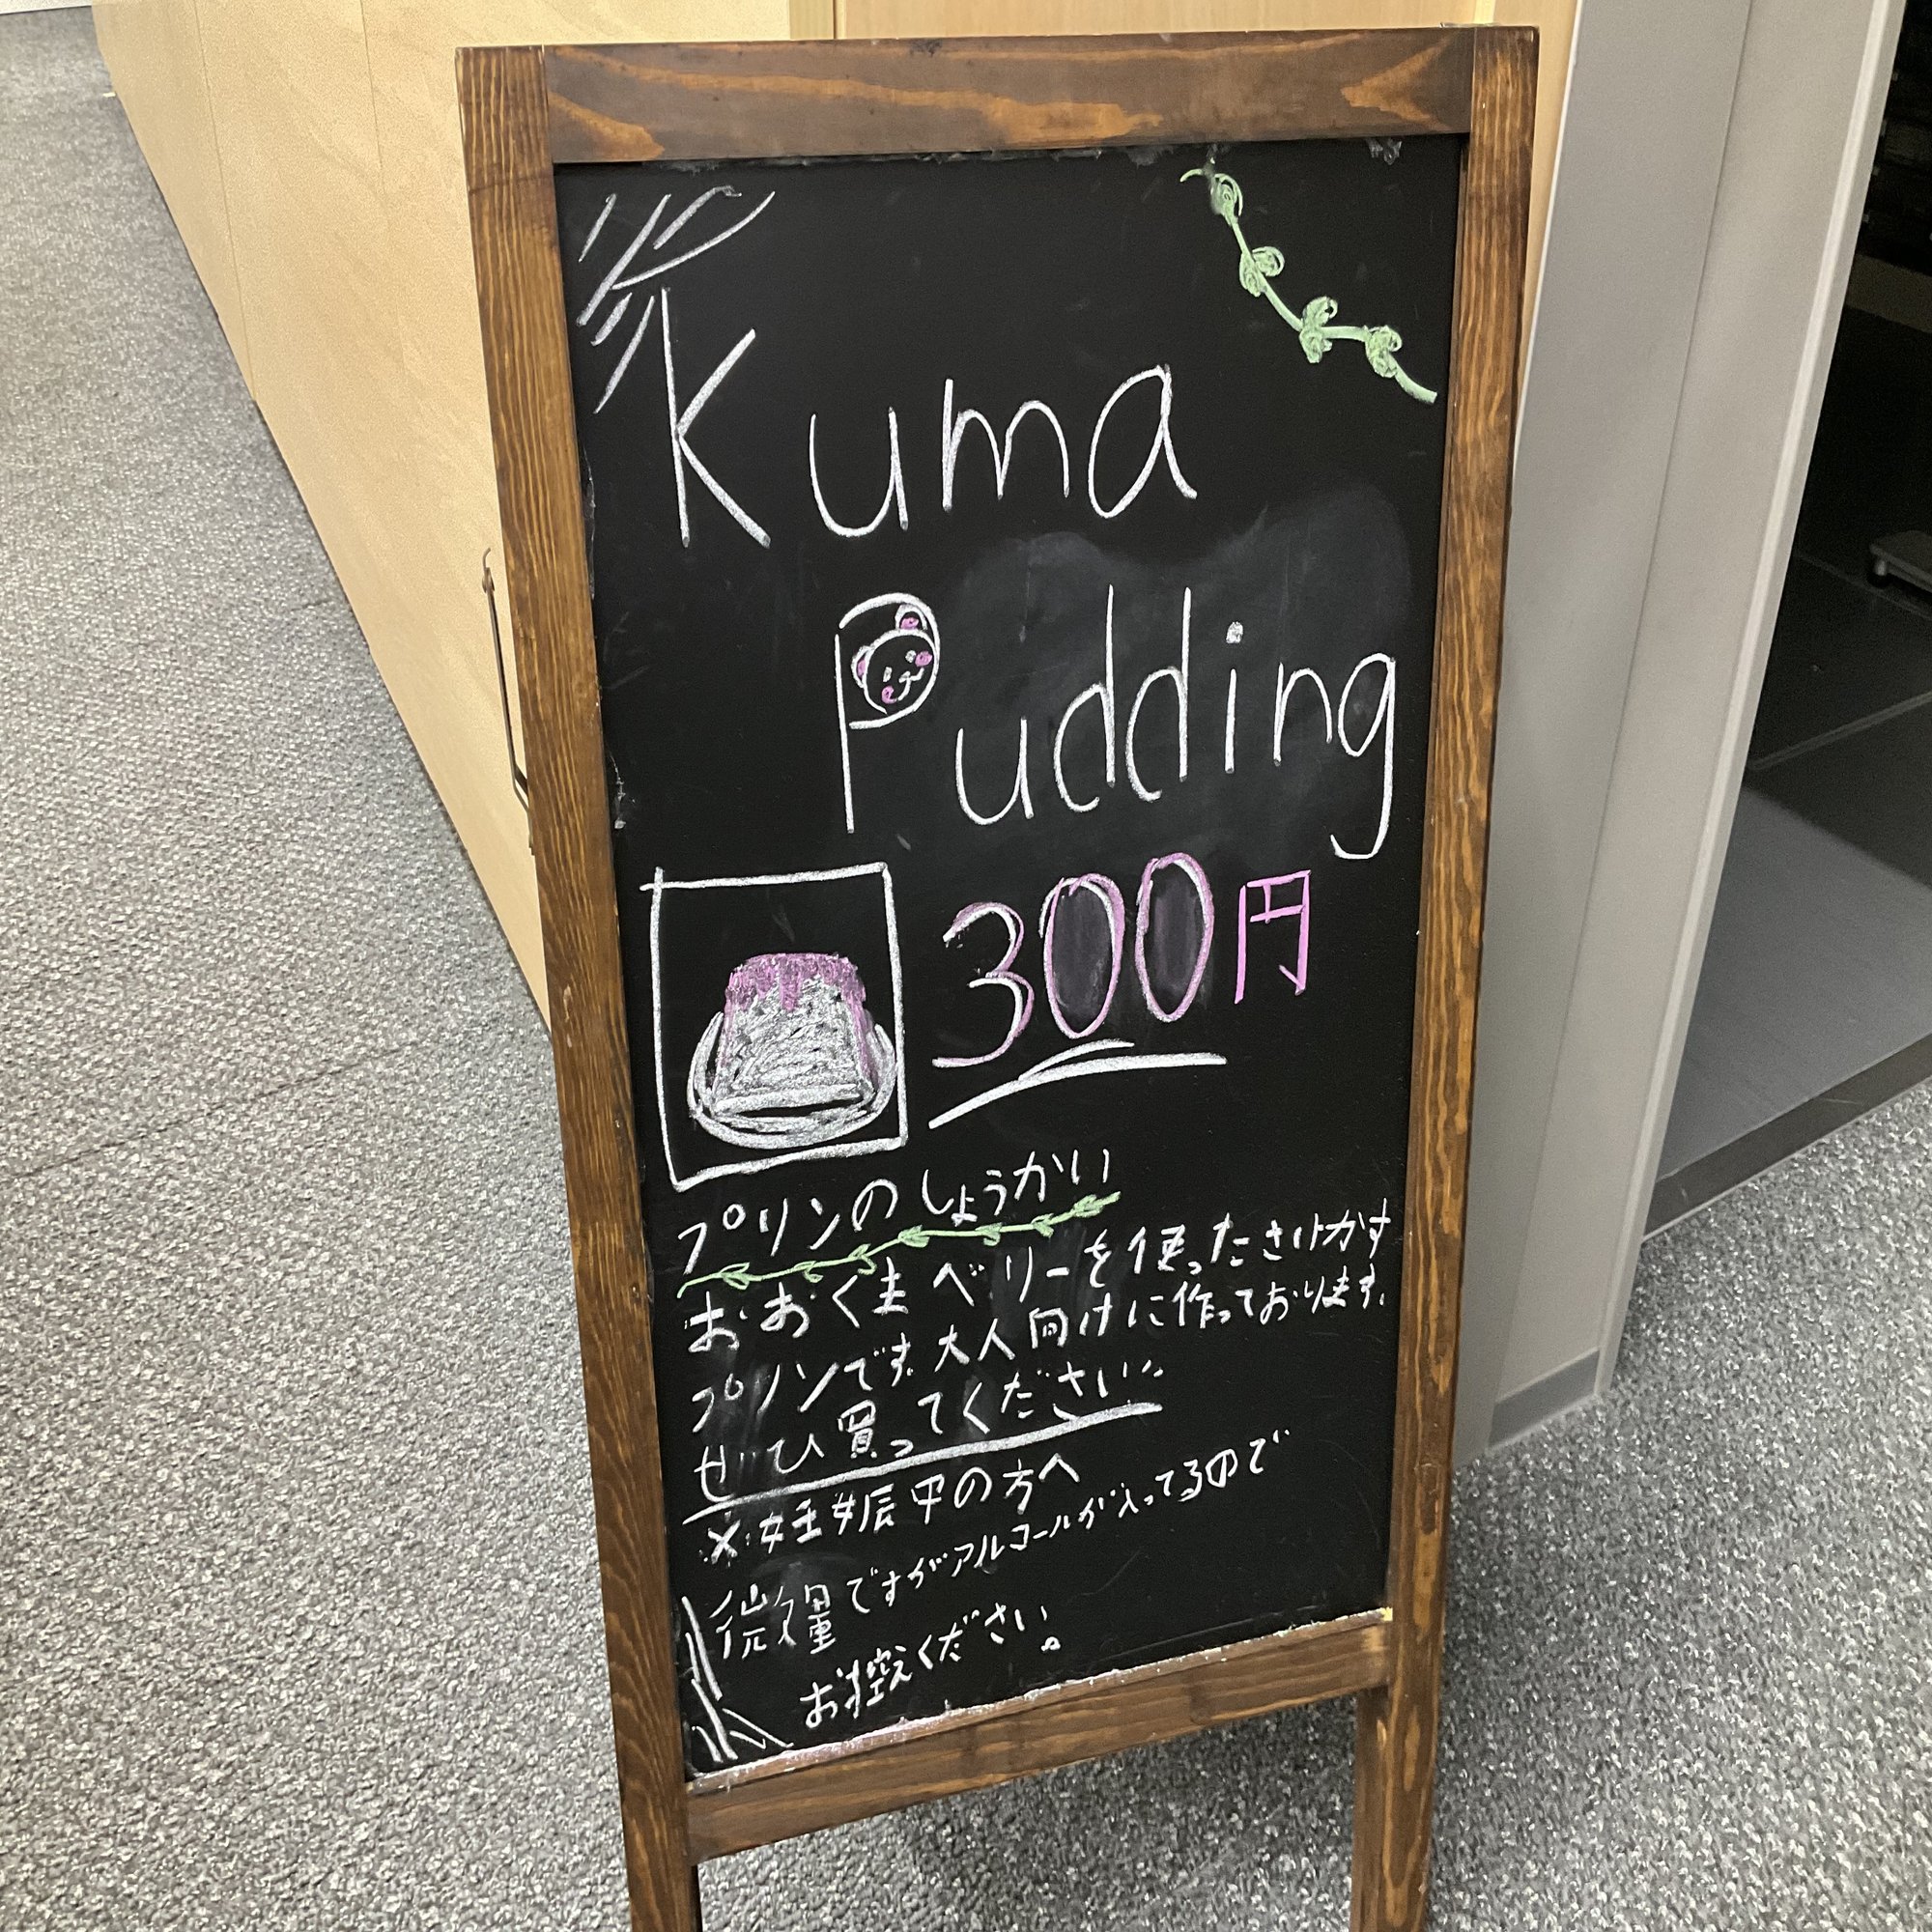 Kuma
Pudding
300円
プリンのしょうかい
おおくまベリーを使ったさけかす
プリンです。大人向けに作っております。
ぜひ買ってください。
※妊娠中の方へ
微量ですがアルコールが入ってるので
お控えください。